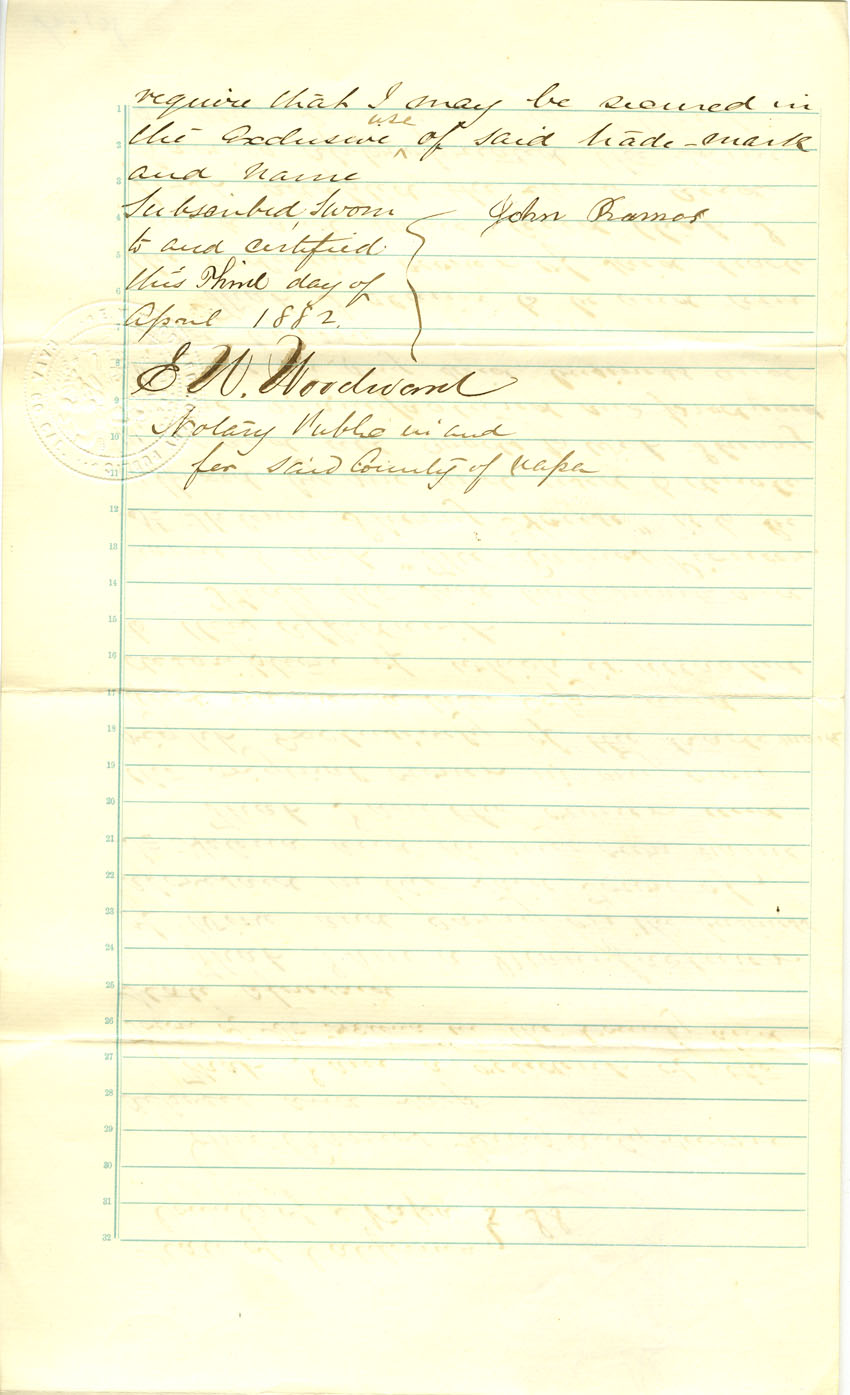 require that I may be secured in
the exclusive use of said trade-mark
and name
Subscribed, Sworn
to and certified
this Third day of
April 1882.
John Ramos
E. W. Woodward
Notary Public in and
for said County of Napa
1
2
3
4
5
6
7
8
9
10
11
12
13
14
15
16
17
18
19
20
21
22
23
24
25
26
27
28
29
30
31
32